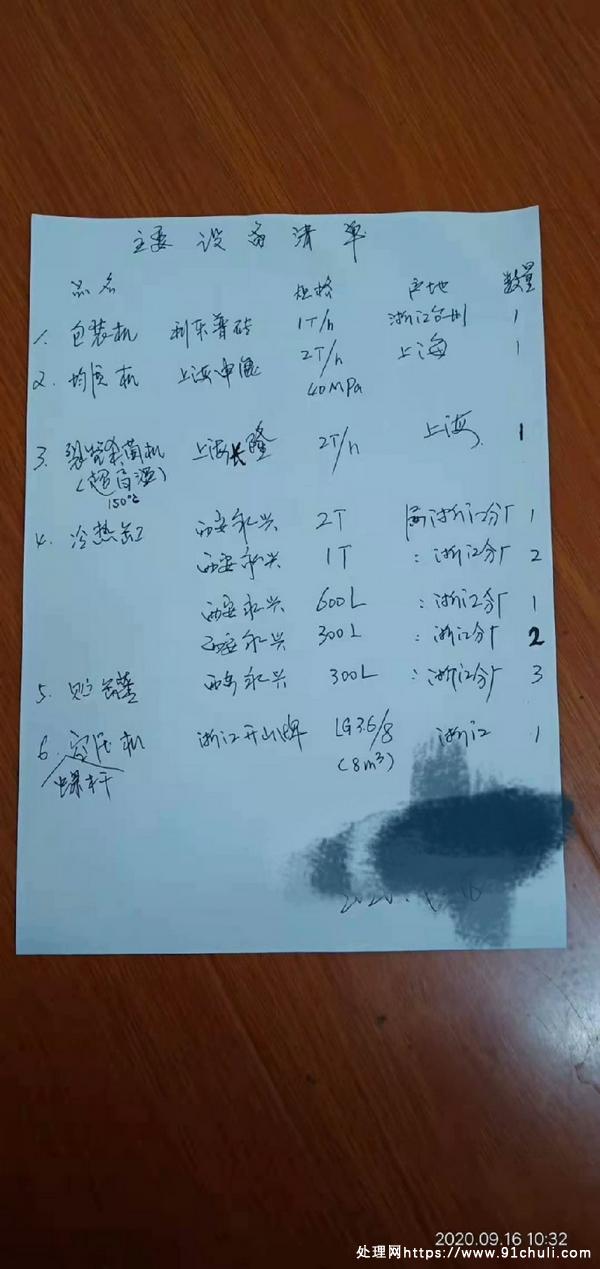 主要设备清单
品名 规格 产地 数量
1. 包装机 利乐普砖 1T/h 浙江台州 1
2. 均质机 上海申 2T/h 上海 1
40MPa
3. 杀菌机 上海长隆 2T/h 上海 1
(超高温)
150℃
4. 冷热缸 西安永兴 2T 浙江分厂 1
西安永兴 1T : 浙江分厂 2
西安永兴 600L : 浙江分厂 1
西安永兴 300L : 浙江分厂 2
5. 西安永兴 300L : 浙江分厂 3
6. 空压机 浙江开山牌 LG3.6/8 浙江 1
(8m³)
螺杆
2020.09.16 10:32
处理网https://www.91chuli.com